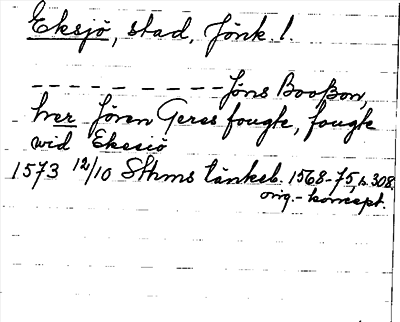 Eksjö, stad, Jönk. l.
- - - - - - - - Jöns Booßon,
her Jören Geres fougte, fougte
wid Ekesiö
1573 12/10 Sthms tänkeb. 1568-75, s. 308.
orig.-koncept.